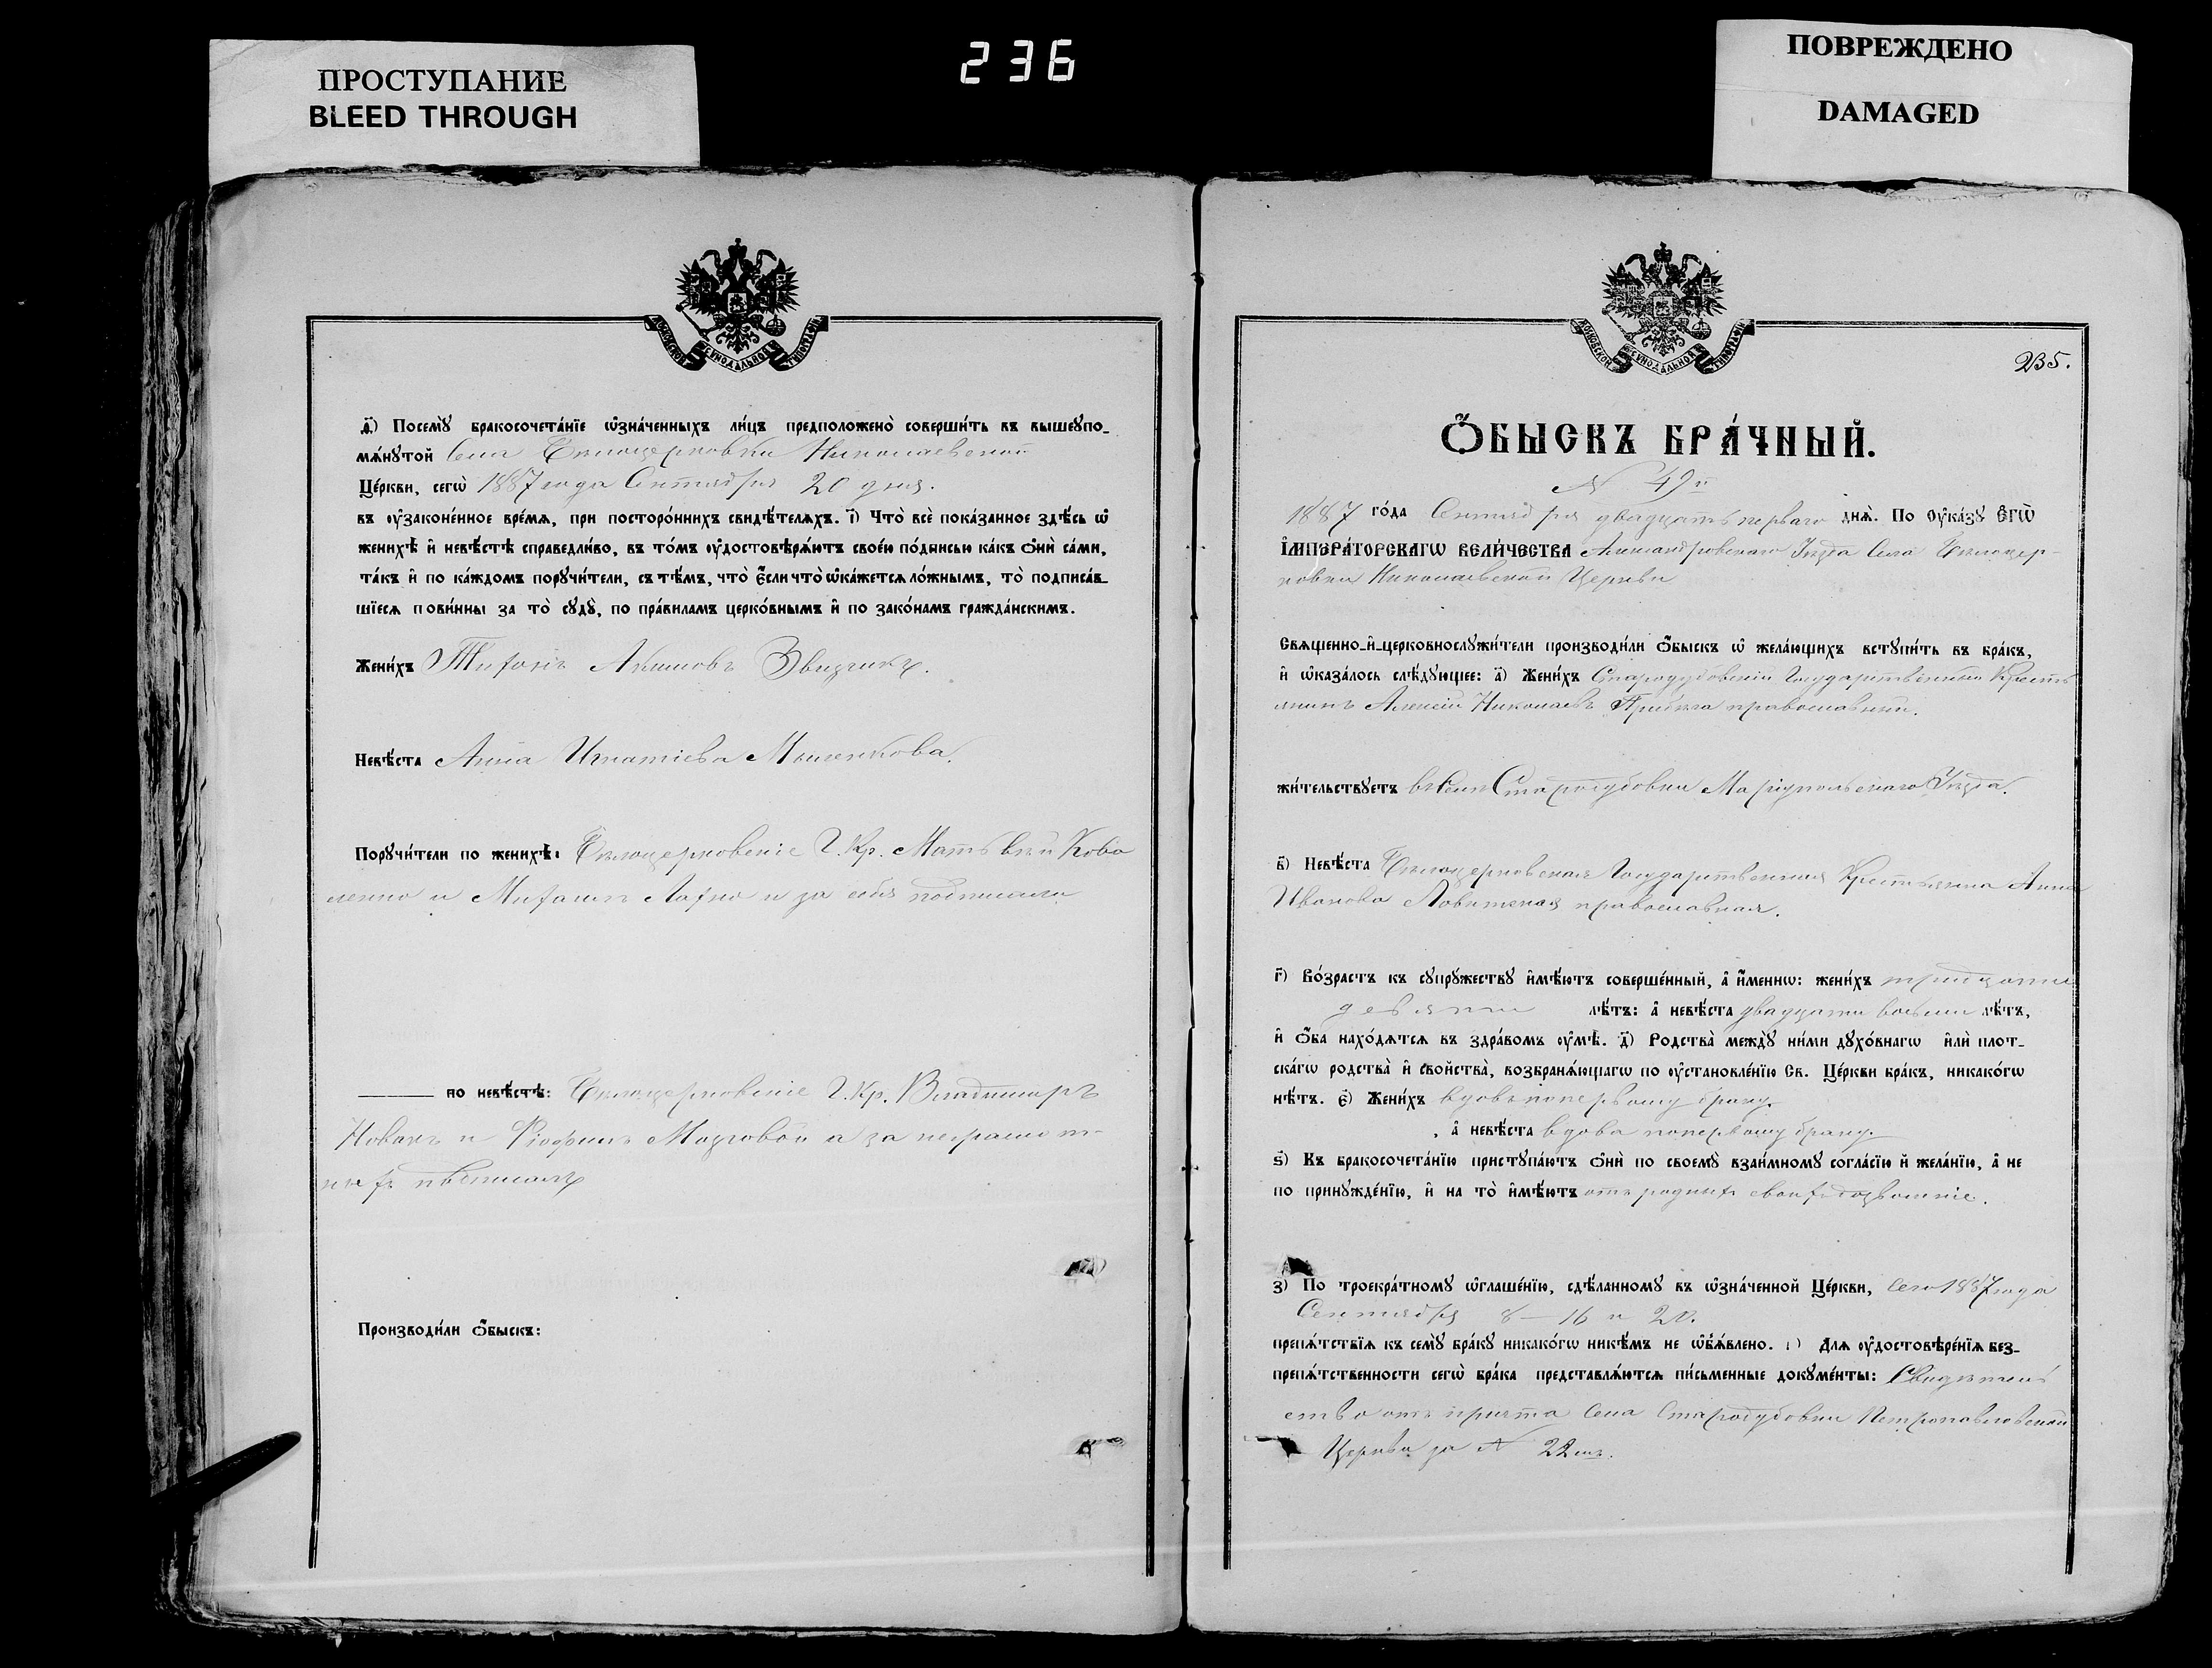 ПРОСТУПАНИЕ
BLEED THROUGH
236
ПОВРЕЖДЕНО
DAMAGED
МОСКОВСКОЙ СѴНОДАЛЬНОЙ ТИПОГРАФІИ
д҃і) Посемꙋ̀ бракосочета́нїе ѡ҆зна́ченныхъ ли́цъ предположено̀ соверши́ть въ вышеꙋпо-
мѧ́нꙋтой Села Бѣлоцерковки Николаевской
Це́ркви, сегѡ̀ 1887 года Сентября 20 дня.
въ ᲂу҆законе́нное вре́мѧ, при посторо́ннихъ свидѣ́телѧхъ. і҃) Что̀ всѐ пока́занное здѣ́сь ѡ҆
женихѣ̀ и҆ невѣ́стѣ справедли́во, въ то́мъ ᲂу҆достовѣрѧ́ютъ свое́ю по́дписью ка́къ ѻ҆нѝ са́ми,
та́къ и҆ по ка́ждомъ порꙋчи́тели, съ тѣ́мъ, что̀ є҆́сли что̀ ѡ҆ка́жетсѧ ло́жнымъ, то̀ подписа́в-
шїесѧ пови́нны за то̀ сꙋдꙋ̀, по пра́виламъ церко́внымъ и҆ по зако́намъ гражда́нскимъ.
Жени́хъ Тихонъ Акимовъ Звизчикъ.
Невѣ́ста Анна Игнатіева Мышенкова.
Порꙋчи́тели по женихѣ̀: Бѣлоцерковскіе Г. Кр. Матвѣй Кова
ленко и Михаилъ Лахно и за себя подписали
по невѣ́стѣ: Бѣлоцерковскіе Г. Кр. Владимиръ
Новакъ и Ѳіофилъ Мозговой а за неграмот-
ныхъ
Производи́ли ѻ҆́быскъ:
МОСКОВСКОЙ СѴНОДАЛЬНОЙ ТИПОГРАФІИ
235.
Ѻ҆́БЫСКЪ БРА́ЧНЫЙ.
№ 49й
1887 го́да Сентября двадцать перваго днѧ̀. По ᲂу҆ка́зꙋ Є҆гѡ̀
І҆мпера́торскагѡ Вели́чества Александровскаго Уѣзда Села Бѣлоцер-
ковки Николаевской Церкви
Свѧщенно-и҆-церковнослꙋжи́тели производи́ли ѻ҆́быскъ ѡ҆ жела́ющихъ встꙋпи́ть въ бра́къ,
и҆ ѡ҆каза́лось слѣ́дꙋющее: а҃) Жени́хъ Стародубовскій Государственный Кресть
янинъ Алексій Николаевъ Прибѣга православный.
жи́тельствꙋетъ въ Селѣ Стародубовки Маріупольскаго Уѣзда.
в҃) Невѣ́ста Бѣлоцерковская Государственная Крестьянка Анна
Иванова православная.
г҃) Во́зрастъ къ сꙋпрꙋ́жествꙋ и҆мѣ́ютъ соверше́нный, а҆ и҆́менно: жени́хъ тридцати
девяти лѣ́тъ: а҆ невѣ́ста двадцати восьми лѣ́тъ,
и҆ ѻ҆́ба нахо́дѧтсѧ въ здра́вомъ ᲂу҆мѣ̀. д҃) Родства̀ междꙋ̀ ни́ми дꙋхо́внагѡ и҆лѝ плот-
ска́гѡ родства̀ и҆ сво́йства̀, возбранѧ́ющагѡ по ᲂу҆становле́нїю Св. Це́ркви бра́къ, никако́гѡ
нѣ́тъ. є҃) Жени́хъ вдовъ поперьвому браку.
, а҆ невѣ́ста вдова поперьвому браку.
ѕ҃) Къ бракосочета́нїю пристꙋпа́ютъ ѻ҆нѝ по своемꙋ̀ взаи́мномꙋ согла́сїю и҆ жела́нїю, а҆ не
по принꙋжде́нїю, и҆ на то̀ и҆мѣ́ютъ отъ родныхъ своихъ дозволеніе.
з҃) По троекра́тномꙋ ѡ҆глаше́нїю, сдѣ́ланномꙋ въ ѡ҆зна́ченной Це́ркви, Сего 1887 года
Сентября 8 — 16 и 20.
препѧ́тствїѧ къ семꙋ̀ бра́кꙋ никако́гѡ никѣ́мъ не ѡ҆б̾ѧ́влено. и҃) Длѧ ᲂу҆достовѣре́нїѧ без-
препѧ́тственности сегѡ̀ бра́ка представлѧ́ютсѧ пи́сьменные докꙋме́нты: Свидѣтель
ство отъ причта Села Стародубовки Петропавловской
Церкви за № 22мъ.